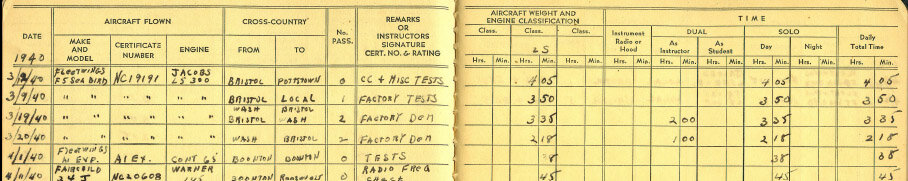 DATE
1940
AIRCRAFT FLOWN
MAKE AND MODEL
CERTIFICATE NUMBER
ENGINE
CROSS-COUNTRY
FROM
TO
No. PASS.
REMARKS OR INSTRUCTORS SIGNATURE CERT. NO. & RATING
AIRCRAFT WEIGHT AND ENGINE CLASSIFICATION
Class. Class. Class.
LS
TIME
Instrument Radio or Hood
DUAL
As Instructor
As Student
SOLO
Day
Night
Daily Total Time
Hrs. Min. Hrs. Min. Hrs. Min. Hrs. Min. Hrs. Min. Hrs. Min. Hrs. Min. Hrs. Min. Hrs. Min.
FLEETWINGS F5 SEABIRD NC19191 JACOBS L5 300 BRISTOL POTTSTOWN 0 CC + MISC TESTS 4 05 4 05 4 05
3/9/40 " " " " BRISTOL LOCAL 1 FACTORY TESTS 3 50 3 50 3 50
WASH BRISTOL
3/19/40 " " " " BRISTOL WASH 2 FACTORY DEM 3 35 2 00 3 35 3 35
3/20/40 " " " " WASH BRISTOL 2 FACTORY DEM 2 18 1 00 2 18 2 18
FLEETWINGS
4/1/40 BOONTON 0 TESTS 38 38 38
FAIRCHILD WARNER RADIO FREQ
24 J NC20608 145 BOONTON ROOSEVELT 0 CHECK 45 45 45